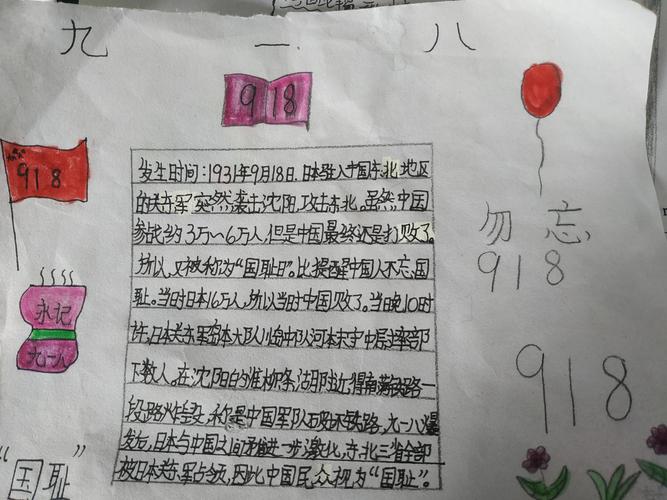 九 一 八
918
918
永记
九一八
"国耻"
发生时间：1931年9月18日，日本驻入中国东北地区
的关东军突然袭击沈阳，攻击东北。虽然中国
参战约3万～6万人，但是中国最终还是打败了。
所以，又被称为"国耻日"。比提醒中国人不忘国
耻。当时日本16万人，所以当时中国败了。当晚10时
许，日本关东军 大队川岛中队河本末 中 率部
下数人，在沈阳 柳条湖附近，将南满铁路一
段路炸 ，称是中国军队破坏铁路。九一八爆
发后，日本与中国之间矛盾进一步激化，东北三省全部
被日本关东军占领，因此中国民众视为"国耻"。
勿忘
918
918